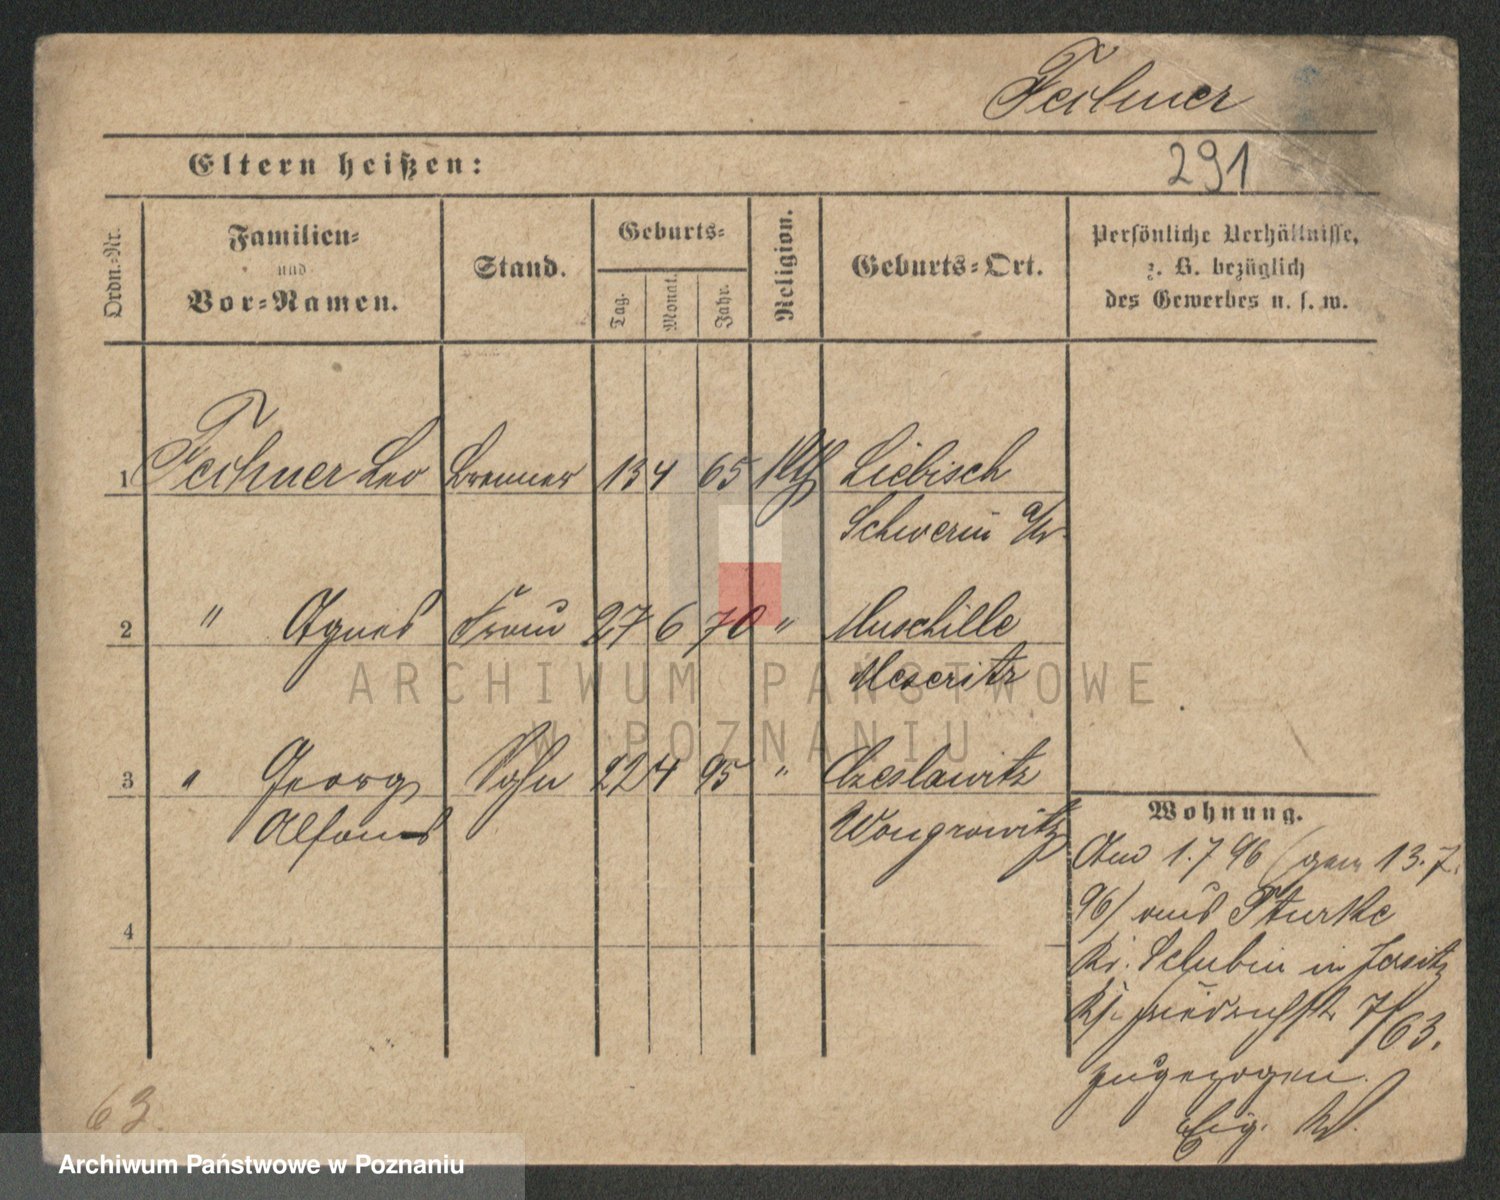 Fechner
291
Eltern heißen:
Ordn.-Nr.
Familien-
und
Vor-Namen.
Stand.
Geburts-
Tag.
Monat.
Jahr.
Religion.
Geburts-Ort.
Persönliche Verhältnisse,
z. B. bezüglich
des Gewerbes u. s. w.
1 Fechner Leo Brenner 13 4 65 kth Liebisch
Schwerin a/W.
2 " Agnes Frau 27 6 70 " Muschille
Meseritz
3 " Georg Sohn 22 4 95 " Czeslawitz
Alfons Wongrowitz
4
Wohnung.
Am 1.7 96 (gem 13.7.
96) aus Sturke
Kr. Schubin in Jersitz
7/63.
zugezogen.
63.
ARCHIWUM PAŃSTWOWE
W POZNANIU
Archiwum Państwowe w Poznaniu